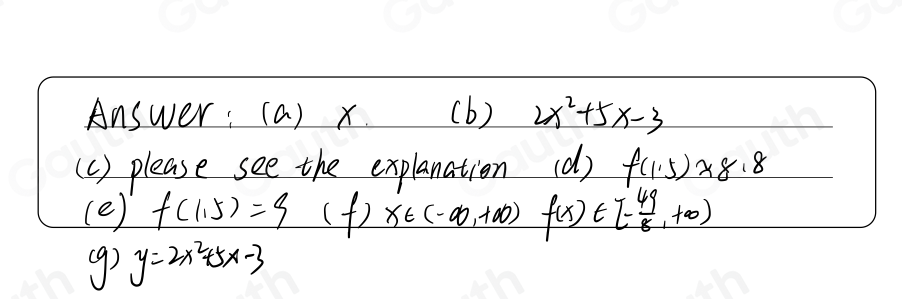 Answer: (a) x. (b) 2x²+5x-3
(c) please see the explanation (d) f(1.5)≈8.8
(e) f(1.5)=9 (f) x∈(-∞,+∞) f(x)∈[-49/8,+∞)
(g) y=2x²+5x-3